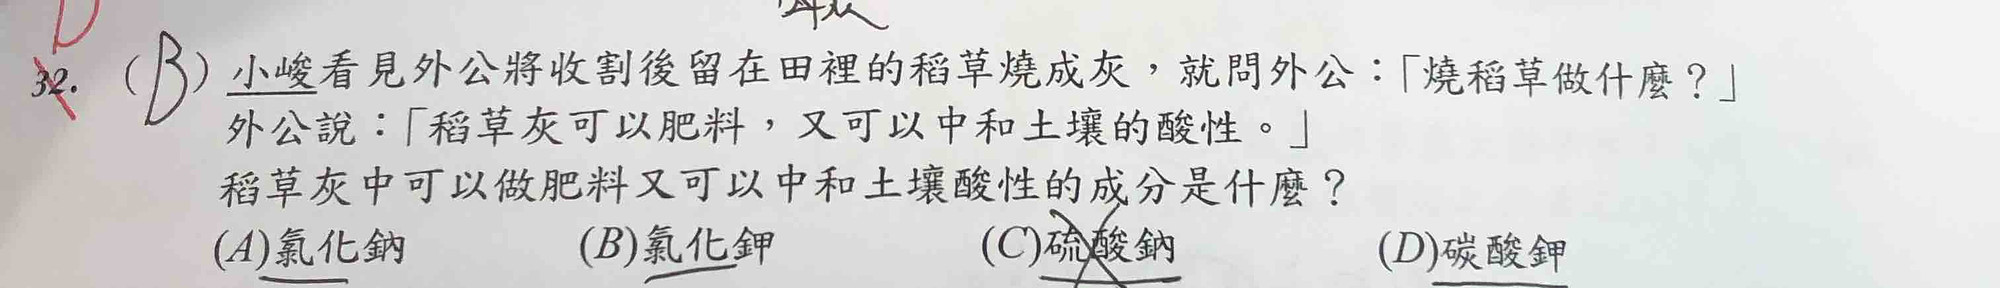 D
32. (B) 小峻看見外公將收割後留在田裡的稻草燒成灰，就問外公：「燒稻草做什麼？」
外公說：「稻草灰可以肥料，又可以中和土壤的酸性。」
稻草灰中可以做肥料又可以中和土壤酸性的成分是什麼？
(A)氯化鈉 (B)氯化鉀 (C)硫酸鈉 (D)碳酸鉀